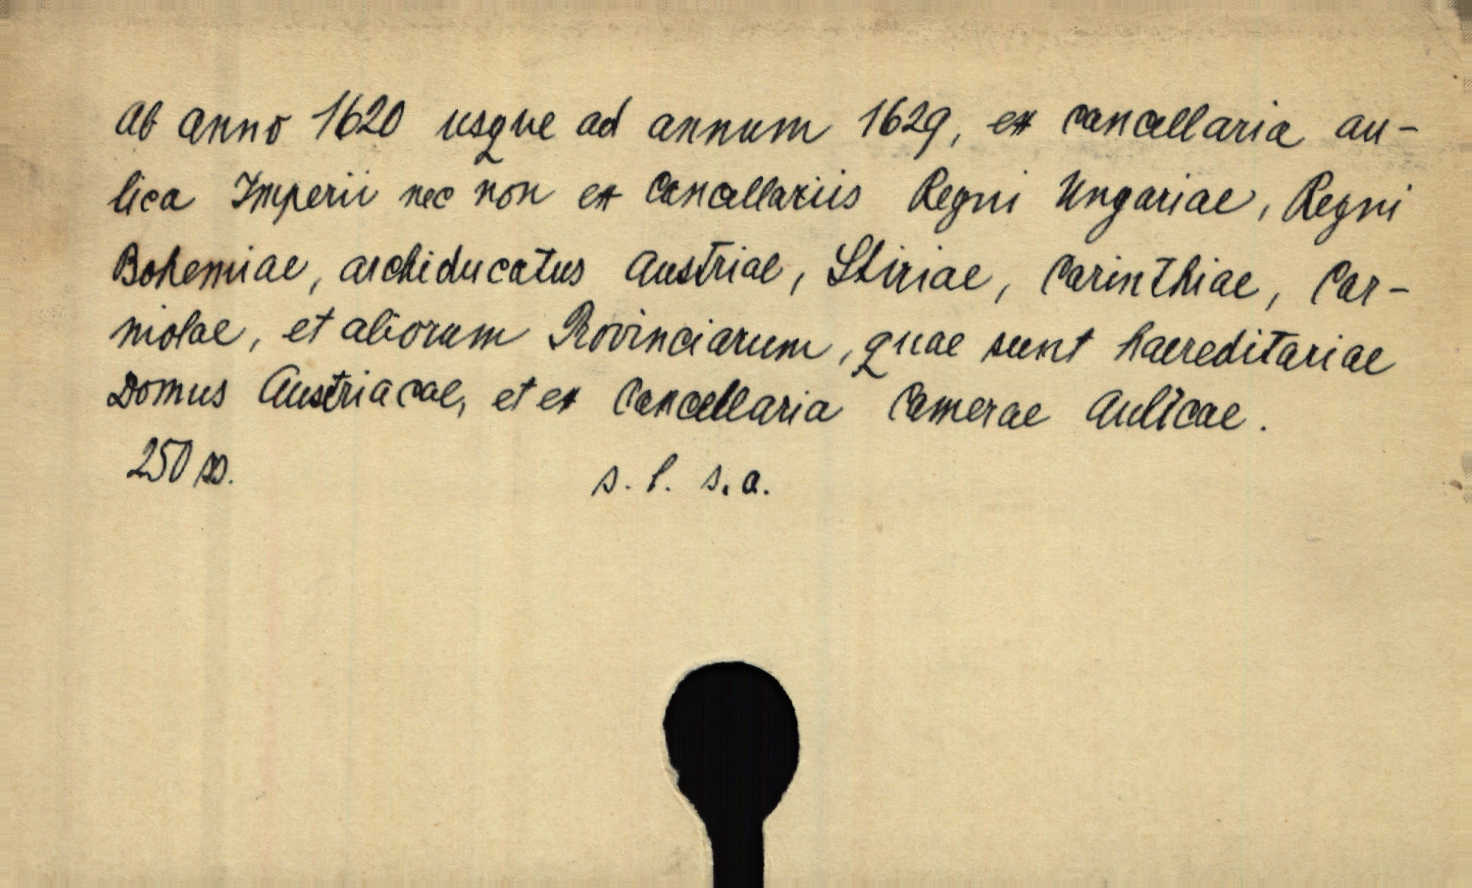 Ab anno 1620 usque ad annum 1629, ex Cancellaria au-
lica Imperii nec non ex Cancellariis Regni Ungariae, Regni
Bohemiae, archiducatus Austriae, Stiriae, Carinthiae, Car-
niolae, et aliorum Provinciarum, quae sunt haereditariae
Domus Austriacae, et ex Cancellaria Camerae Aulicae.
250 ss. s. l. s. a.